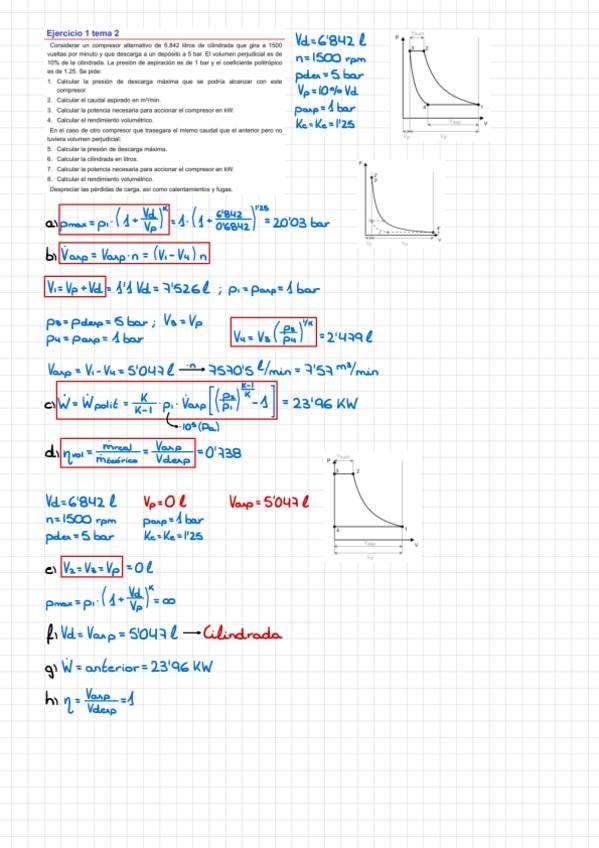 Ejercicio 1 tema 2
Considerar un compresor alternativo de 6.842 litros de cilindrada que gira a 1500
vueltas por minuto y que descarga a un depósito a 5 bar. El volumen perjudicial es de
10% de la cilindrada. La presión de aspiración es de 1 bar y el coeficiente politrópico
es de 1.25. Se pide:
1. Calcular la presión de descarga máxima que se podría alcanzar con este
compresor.
2. Calcular el caudal aspirado en m³/min.
3. Calcular la potencia necesaria para accionar el compresor en kW.
4. Calcular el rendimiento volumétrico.
En el caso de otro compresor que trasegara el mismo caudal que el anterior pero no
tuviera volumen perjudicial:
5. Calcular la presión de descarga máxima.
6. Calcular la cilindrada en litros.
7. Calcular la potencia necesaria para accionar el compresor en kW.
8. Calcular el rendimiento volumétrico.
Despreciar las pérdidas de carga, así como calentamientos y fugas.
Vd = 6'842 l
n = 1500 rpm
pdes = 5 bar
Vp = 10% Vd
pasp = 1 bar
Kc = Ke = 1'25
a) pmax = p₁·(1 + Vd/Vp)^K = 1·(1 + 6'842/0'6842)^1'25 = 20'03 bar
b) V̇asp = Vasp·n = (V₁ - V₄) n
V₁ = Vp + Vd = 1'1 Vd = 7'526 l ; p₁ = pasp = 1 bar
p₃ = pdesp = 5 bar ; V₃ = Vp
p₄ = pasp = 1 bar
V₄ = V₃ (p₃/p₄)^1/K = 2'479 l
Vasp = V₁ - V₄ = 5'047 l ·n→ 7570'5 l/min = 7'57 m³/min
c) Ẇ = Ẇpolit = K/K-1 · p₁ · V̇asp [(p₂/p₁)^K-1/K - 1] = 23'96 KW
·10⁵ (Pa)
d) ηvol = ṁreal/ṁteórico = Vasp/Vdesp = 0'738
Vd = 6'842 l Vp = 0 l Vasp = 5'047 l
n = 1500 rpm pasp = 1 bar
pdes = 5 bar Kc = Ke = 1'25
e) V₂ = V₃ = Vp = 0 l
pmax = p₁·(1 + Vd/Vp)^K = ∞
f) Vd = Vasp = 5'047 l → Cilindrada
g) Ẇ = anterior = 23'96 KW
h) η = Vasp/Vdesp = 1